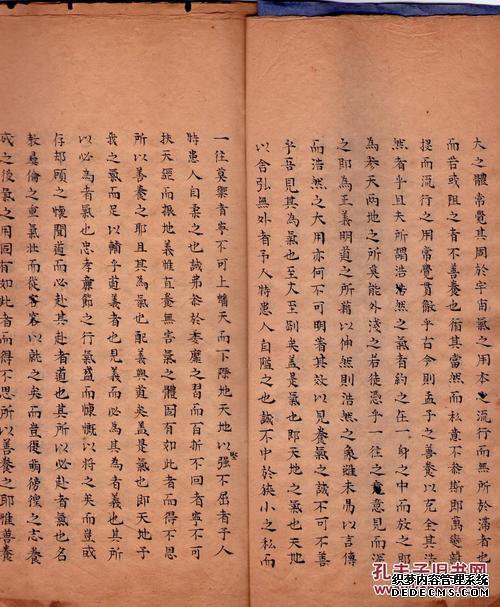 大之體常覺其周於宇宙氣之用本之流行而無所於滯者也
而苦或阻之者不善養也循其當然而私意不參斯即萬變雜
投而流行之用常覺貫徹乎古今則孟子之善養以完全其浩
然者乎且夫所謂浩然之氣者約之在一身之中而放之即
為參天兩地之所莫能外淺之若徒憑乎一往之意見而深
之即為正義明道之所藉以伸然則浩然之象雖未易以言傳
而浩然之大用亦何不可明著其效以見養氣之誠不可不善
乎吾見其為氣也至大至剛矣蓋是氣也即天地之氣也天地
以含弘無外者予人特患人自隘之也誠不中於狹小之私而
一往莫禦者寧不可上蟠天而下際地天地以堅強不屈者予人
特患人自柔之也誠弗於於委靡之習而百折不回者寧不可
扶天經而振地義惟直養無害氣之體固有如此者而得不思
所以善養之耶且其為氣也配義與道矣蓋是氣也即天地予
我之氣而足以輔乎道義者也見義而必為其為者義也其所
以必為者氣也忠孝廉節之行氣盛而慷慨以將之矣而豈或
存却顧之懷聞道而必赴其赴者道也其所以必赴者氣也名
教彝倫之重氣壯而從容以就之矣而豈復萌徬徨之志養
成之後氣之用固有如此者而得不思所以善養之耶惟善養
孔夫子旧书网
织梦内容管理系统
DEDECMS.COM